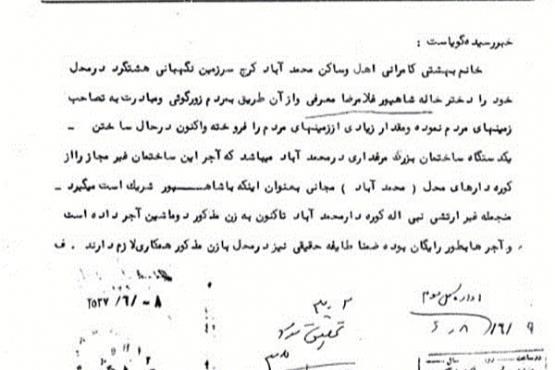 خبررسیده گویاست :
خانم بهشتی کامرانی اهل وساکن محمد آباد کرج سرزمین نگهبانی هشتگرد درمحل
خود را دختر خاله شاهپور غلامرضا معرفی واز آن طریق بمردم زورگوئی ومبادرت به تصاحب
زمینهای مردم نموده ومقدار زیادی اززمینهای مردم را فروخته واکنون درحال ساختن –
یکدستگاه ساختمان بزرگ مرغداری درمحمد آباد میباشد که آجر این ساختمان غیر مجاز رااز
کوره دارهای محل ( محمد آباد ) مجانی بعنوان اینکه باشاهپور شریک است میگیرد –
منجمله غیر ارتشی نبی اله کوره دارمحمد آباد تاکنون به زن مذکور دوماشین آجر داده است
و آجر هابطور رایگان بوده ضمنا طایفه حقیقی نیز درمحل بازن مذکور همکاری لازم دارند . ف
اداره کل سوم
۳۰۲
۲۵۳۷/۶/۰۸
تحقیق شود
۹/۶/